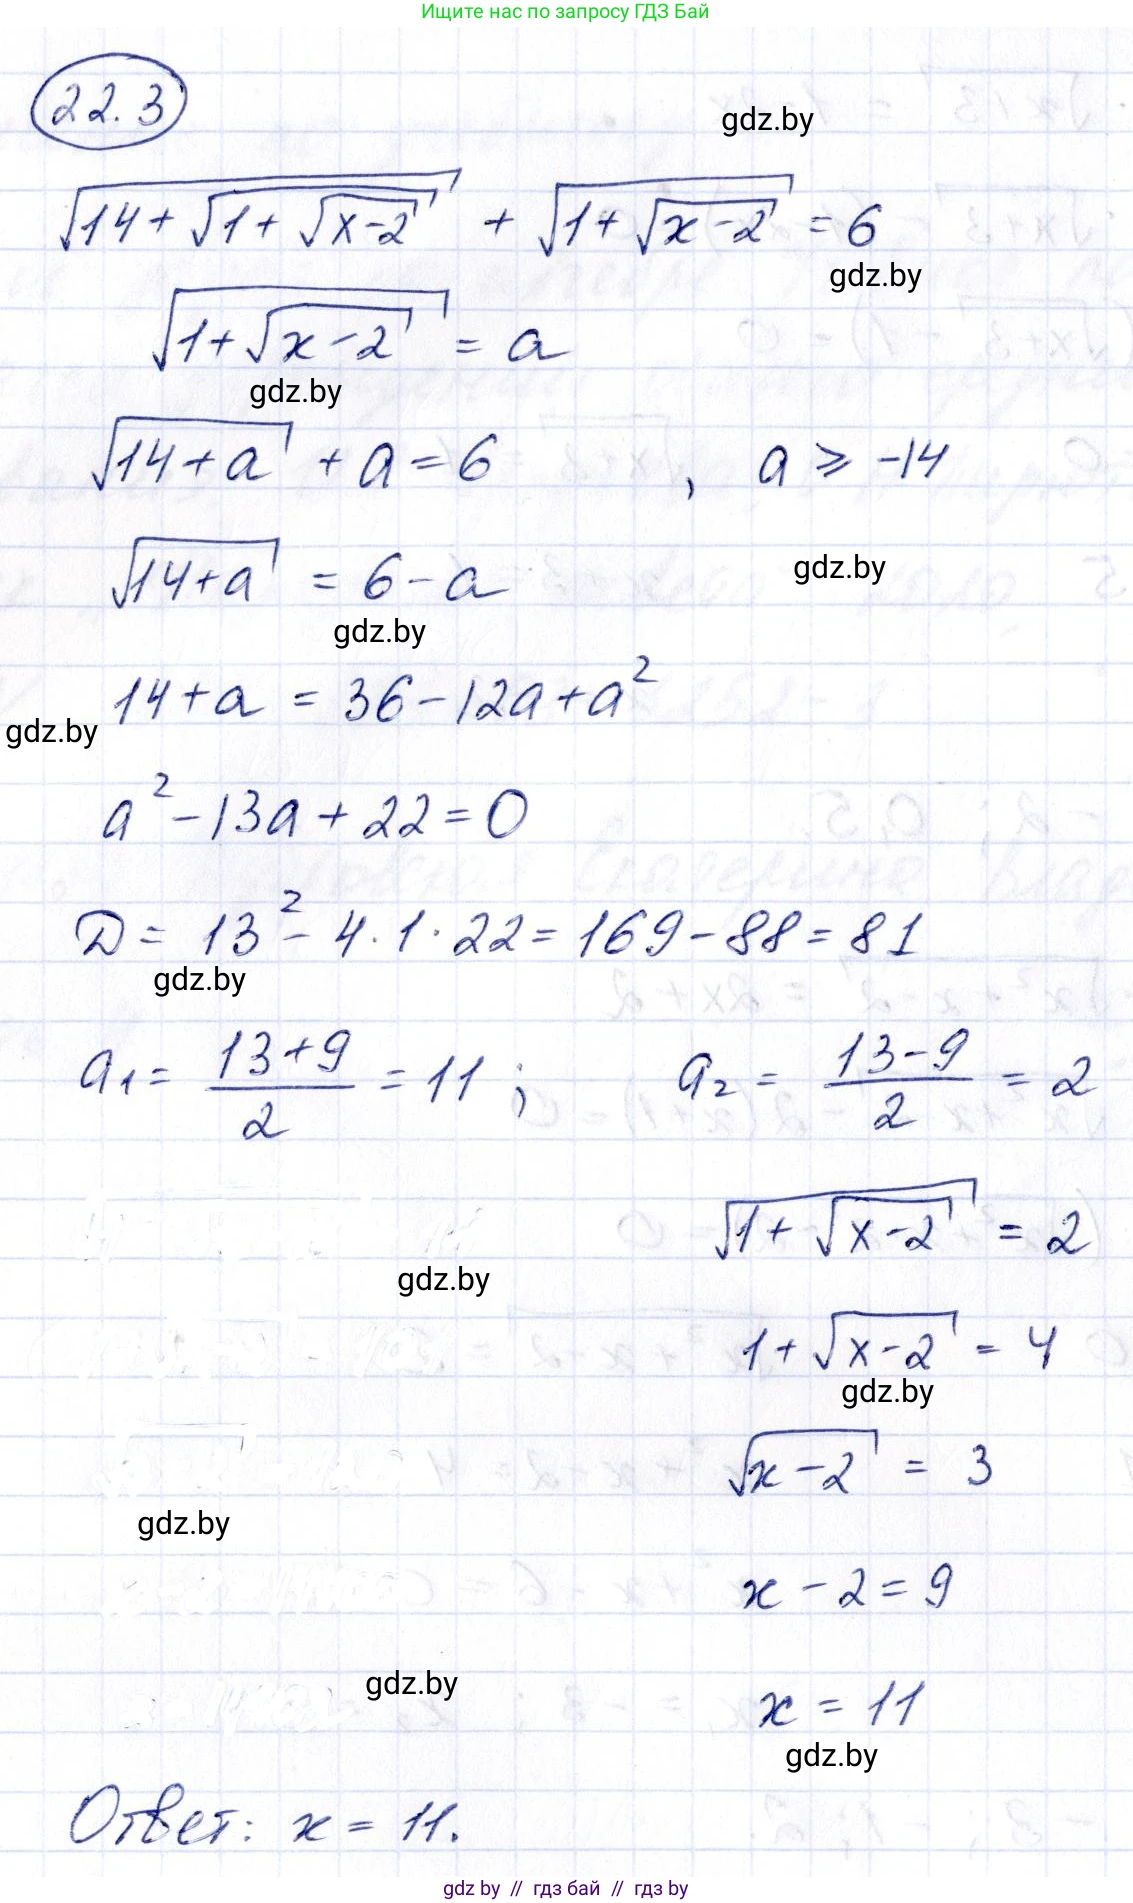 Ищите нас по запросу ГДЗ Бай
22.3
gdz.by
√(14+√(1+√(x-2))) + √(1+√(x-2)) = 6
gdz.by
√(1+√(x-2)) = a
gdz.by
√(14+a) + a = 6 , a ≥ -14
√(14+a) = 6-a
gdz.by
gdz.by
14+a = 36-12a+a²
gdz.by
a²-13a+22=0
D = 13²-4·1·22=169-88=81
gdz.by
a₁ = (13+9)/2 = 11 ; a₂ = (13-9)/2 = 2
√(1+√(x-2)) = 2
gdz.by
1+√(x-2) = 4
gdz.by
√(x-2) = 3
gdz.by
x-2=9
gdz.by
x = 11
gdz.by
Ответ: x = 11.
gdz by // гдз бай // гдз by